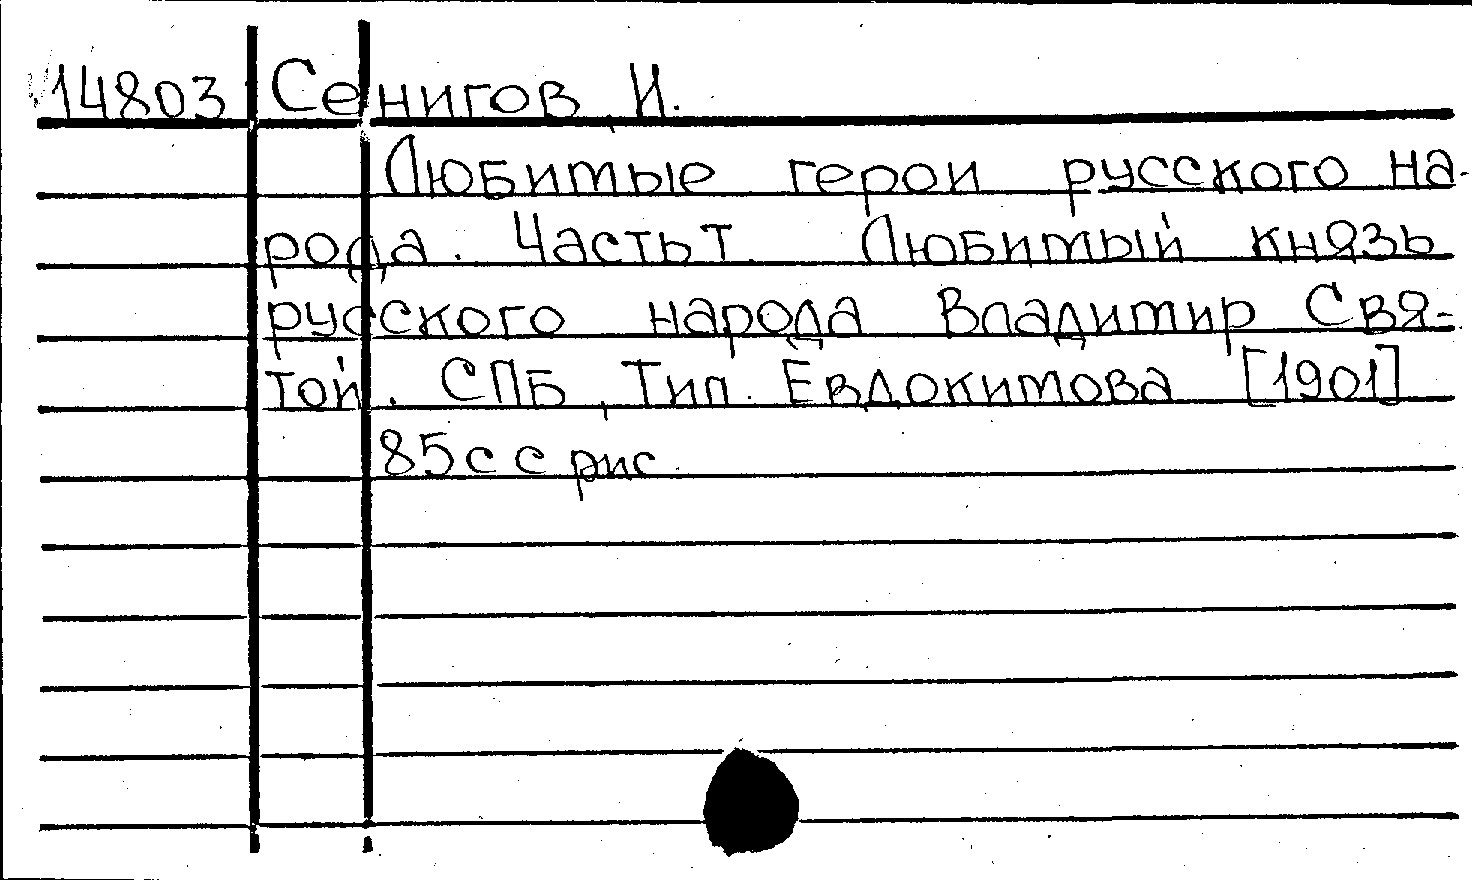 14803 Сенигов, И.
Любимые герои русского на-
рода. Часть I. Любимый князь
русского народа Владимир Свя-
той. СПБ, Тип. Евдокимова [1901]
85с с рис.